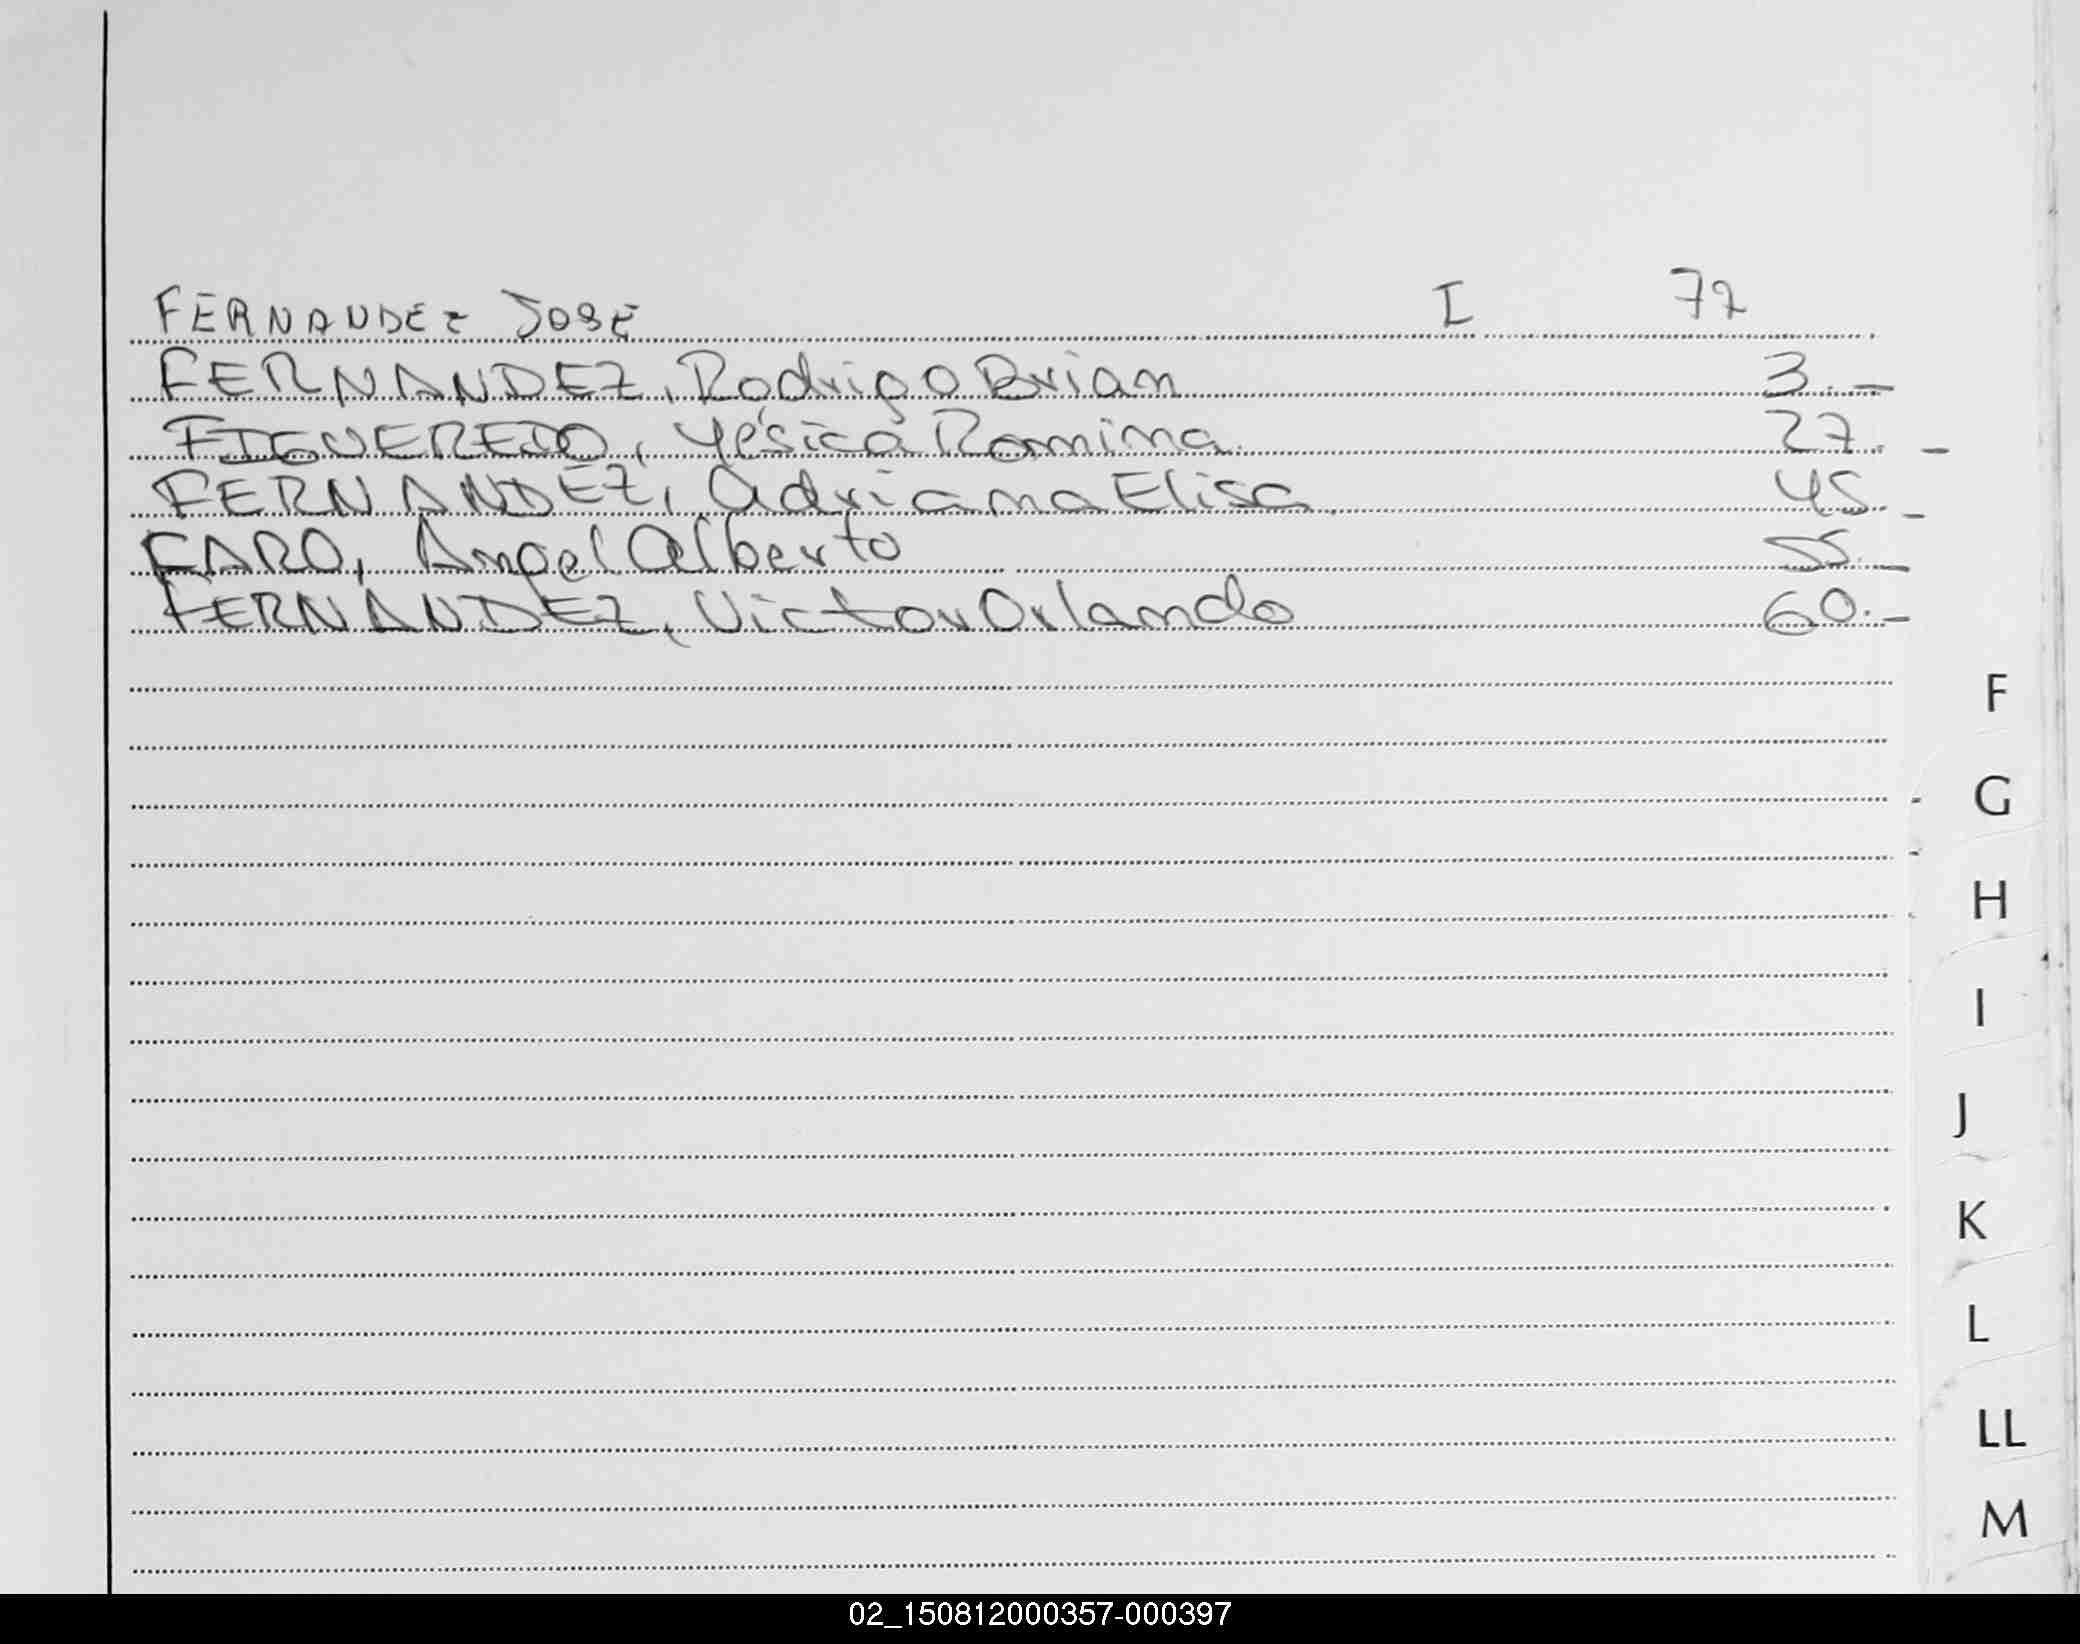 FERNANDEZ JOSE I 72
FERNANDEZ, Rodrigo Brian 3.-
FIGUEREDO, Yésica Romina. 27.-
FERNANDEZ, Adriana Elisa 45.-
FARO, Angel Alberto 55.-
FERNANDEZ, Victor Orlando 60.-
F
G
H
I
J
K
L
LL
M
02_150812000357-000397